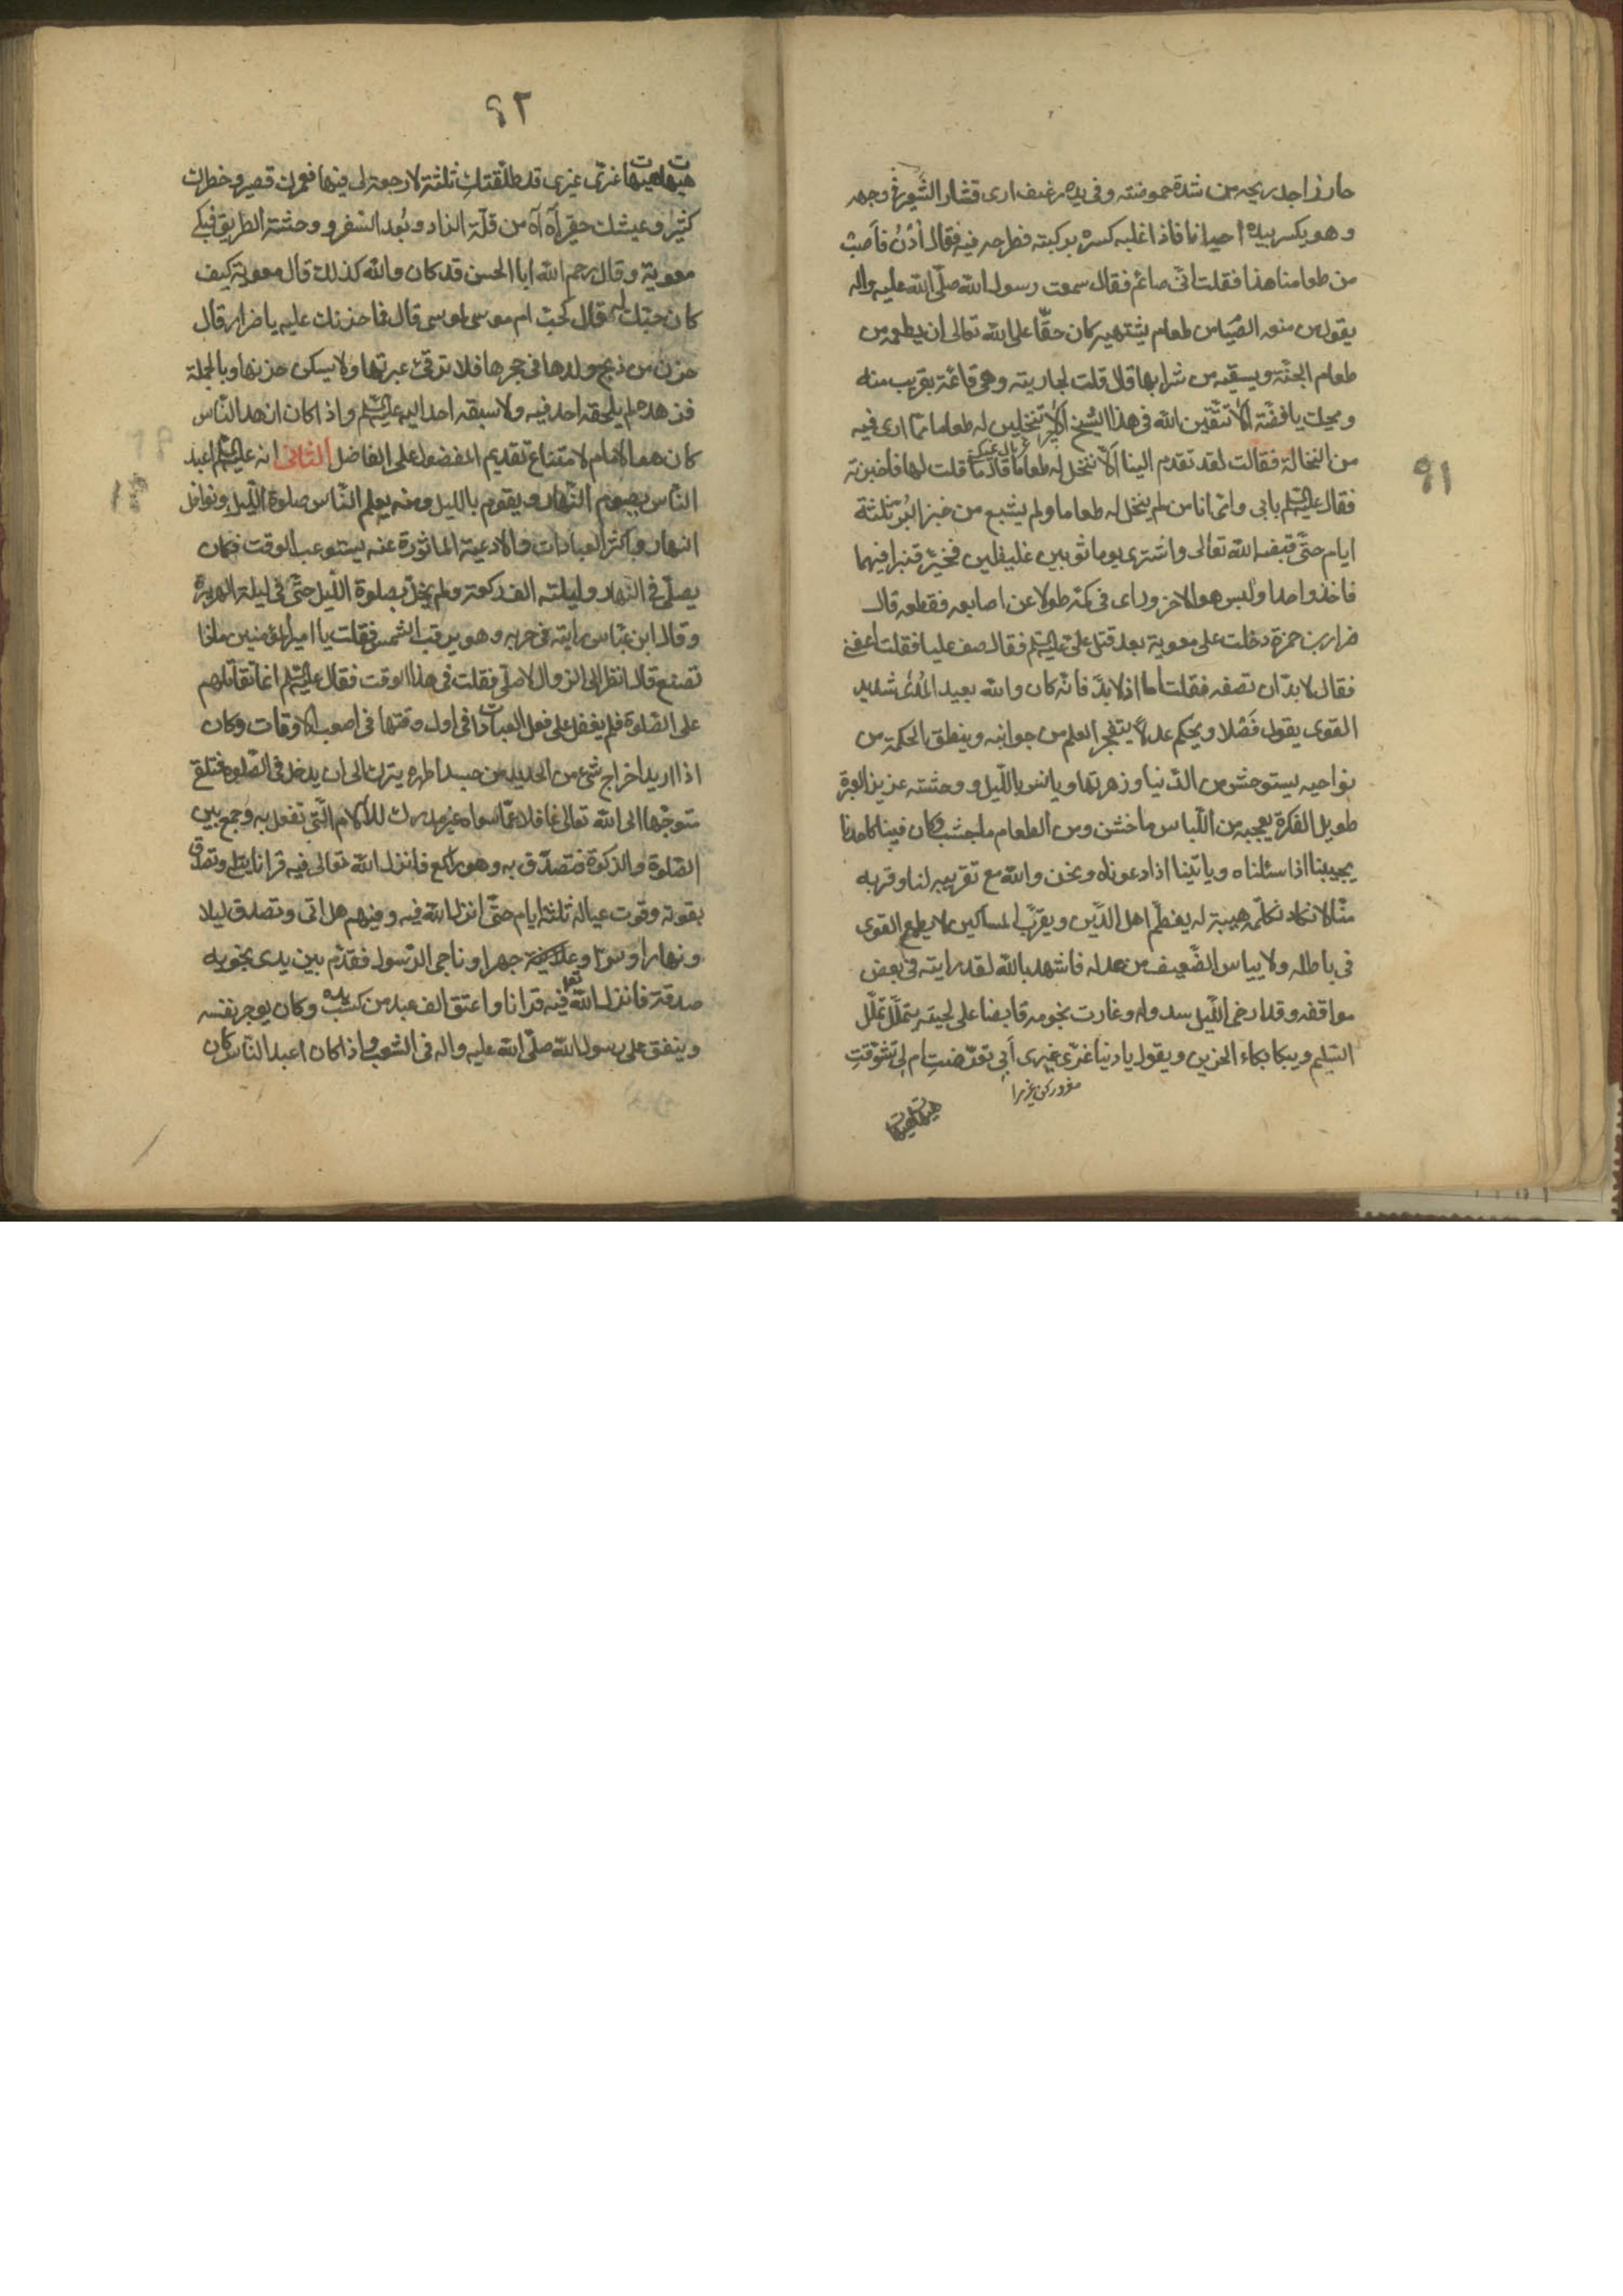 حارز اجد ريحه من شدة حموضته وفى يده رغيف ارى قشار الشعير فى وجهه
وهو يكسر بيده احيانا فاذا غلبه كسره بركبته فطرحه فيه فقال اُدْنُ فاَصِبْ
من طعامنا هذا فقلت انى صائم فقال سمعت رسول الله صلى الله عليه واله
يقول من منعه الصيام من طعام يشتهيه كان حقا على الله تعالى ان يطعمه من
طعام الجنة ويسقيه من شرابها قال قلت لجاريته وهى قائمة بقريب منه
ويحك يا فضة الا تتقين الله فى هذا الشيخ الا تنخلين له طعاما مما ارى فيه
من النخالة فقالت لقد تقدم الينا الا ننخل له طعاما قال ما قلت لها فاخبرته
فقال عليه السلم بابى وامى انا من لم ينخل له طعاما ولم يشبع من خبز البُر ثلثة
ايام حتى قبضه الله تعالى واشترى يوما ثوبين غليظين فخيّر قنبرا فيهما
فاخذ واحدا ولبس هو الاخر وراى فى كمه طولا عن اصابعه فقطعه قال
ضرار بن حمزة دخلت على معوية بعد قتل على عليه السلم فقال صف عليا فقلت اعفنى
فقال لا بد ان تصفه فقلت اما اذ لا بد فانه كان والله بعيد المُدى شديد
القوى يقول فَصْلا ويحكم عدلا يتفجر العلم من جوانبه وينطق الحكمة من
نواحيه يستوحش من الدنيا وزهرتها ويانس بالليل ووحشته غزير العبرة
طويل الفكرة يعجبه من اللباس ما خشن ومن الطعام ما جشب وكان فينا كاحدنا
يجيبنا اذا سئلناه وياتينا اذا دعوناه ونحن والله مع تقريبه لنا وقربه
منا لا نكاد نكلمه هيبة له يعظم اهل الدين ويقرب المساكين لا يطمع القوى
فى باطله ولا يياس الضعيف من عدله فاشهد بالله لقد رايته فى بعض
مواقفه وقد ارخى الليل سدوله وغارت نجومه قابضا على لحيته يتململ تململ
السليم ويبكا بكاء الحزين ويقول يا دنيا غرّى غيرى اَبى تعرّضتِ ام لى تشوّقتِ
هيهات هيهات
٩١
٩٢
هيهات هيهات غرّى غيرى قد طلقتكِ ثلثة لا رجعة لى فيها فعمرك قصير وخطرك
كثير وعيشك حقير آه آه من قلة الزاد وبُعد السفر ووحشة الطريق فبكى
معوية وقال رحم الله ابا الحسن قد كان والله كذلك قال معوية كيف
كان حبك له قال كحب ام موسى لموسى قال فما حزنك عليه يا ضرار قال
حزن من ذبح ولدها فى حجرها فلا ترقى عبرتها ولا يسكن حزنها وبالجملة
فزهده لم يلحقه احد فيه ولا سبقه احد اليه عليه السلم واذا كان ازهد الناس
كان هو الامام لامتناع تقديم المفضول على الفاضل الثانى انه عليه السلم اعبد
الناس يصوم النهار ويقوم بالليل ومنه يعلم الناس صلوة الليل ونوافل
النهار واكثر العبادات والادعية الماثورة عنه يستوعب الوقت فكان
يصلى فى النهاره وليلته الف ركعة ولم يخل بصلوة الليل حتى فى ليلة الهرير
وقال ابن عباس رايته فى حربه وهو يرقب الشمس فقلت يا امير المؤمنين ماذا
تصنع قال انظر الى الزوال لاصلى فقلت فى هذا الوقت فقال عليه السلم انما نقاتلهم
على الصلوة فلم يغفل على فعل العبادات فى اول وقتها فى اصعب الاوقات وكان
اذا اريد اخراج شىء من الحديد من جسده اطهره يترك الى ان يدخل فى الصلوة فتبقى
متوجها الى الله تعالى غافلا عما سواه غير مدرك للآلام التى تفعل به وجمع بين
الصلوة والزكوة فتصدق به وهو راكع فانزل الله تعالى فيه قرانا يتلى وتصدق
بقوته وقوت عياله ثلثة ايام حتى انزل الله فيه وفيهم هل اتى وتصدق ليلا
ونهارا وسرا وعلانية جهرا وناجى الرسول فقدم بين يدى نجويه
صدقة فانزل الله تعا فيه قرانا واعتق الف عبد من كسب يده وكان يوجر نفسه
وينفق على رسول الله صلى الله عليه واله فى الشعب واذا كان اعبد الناس كان